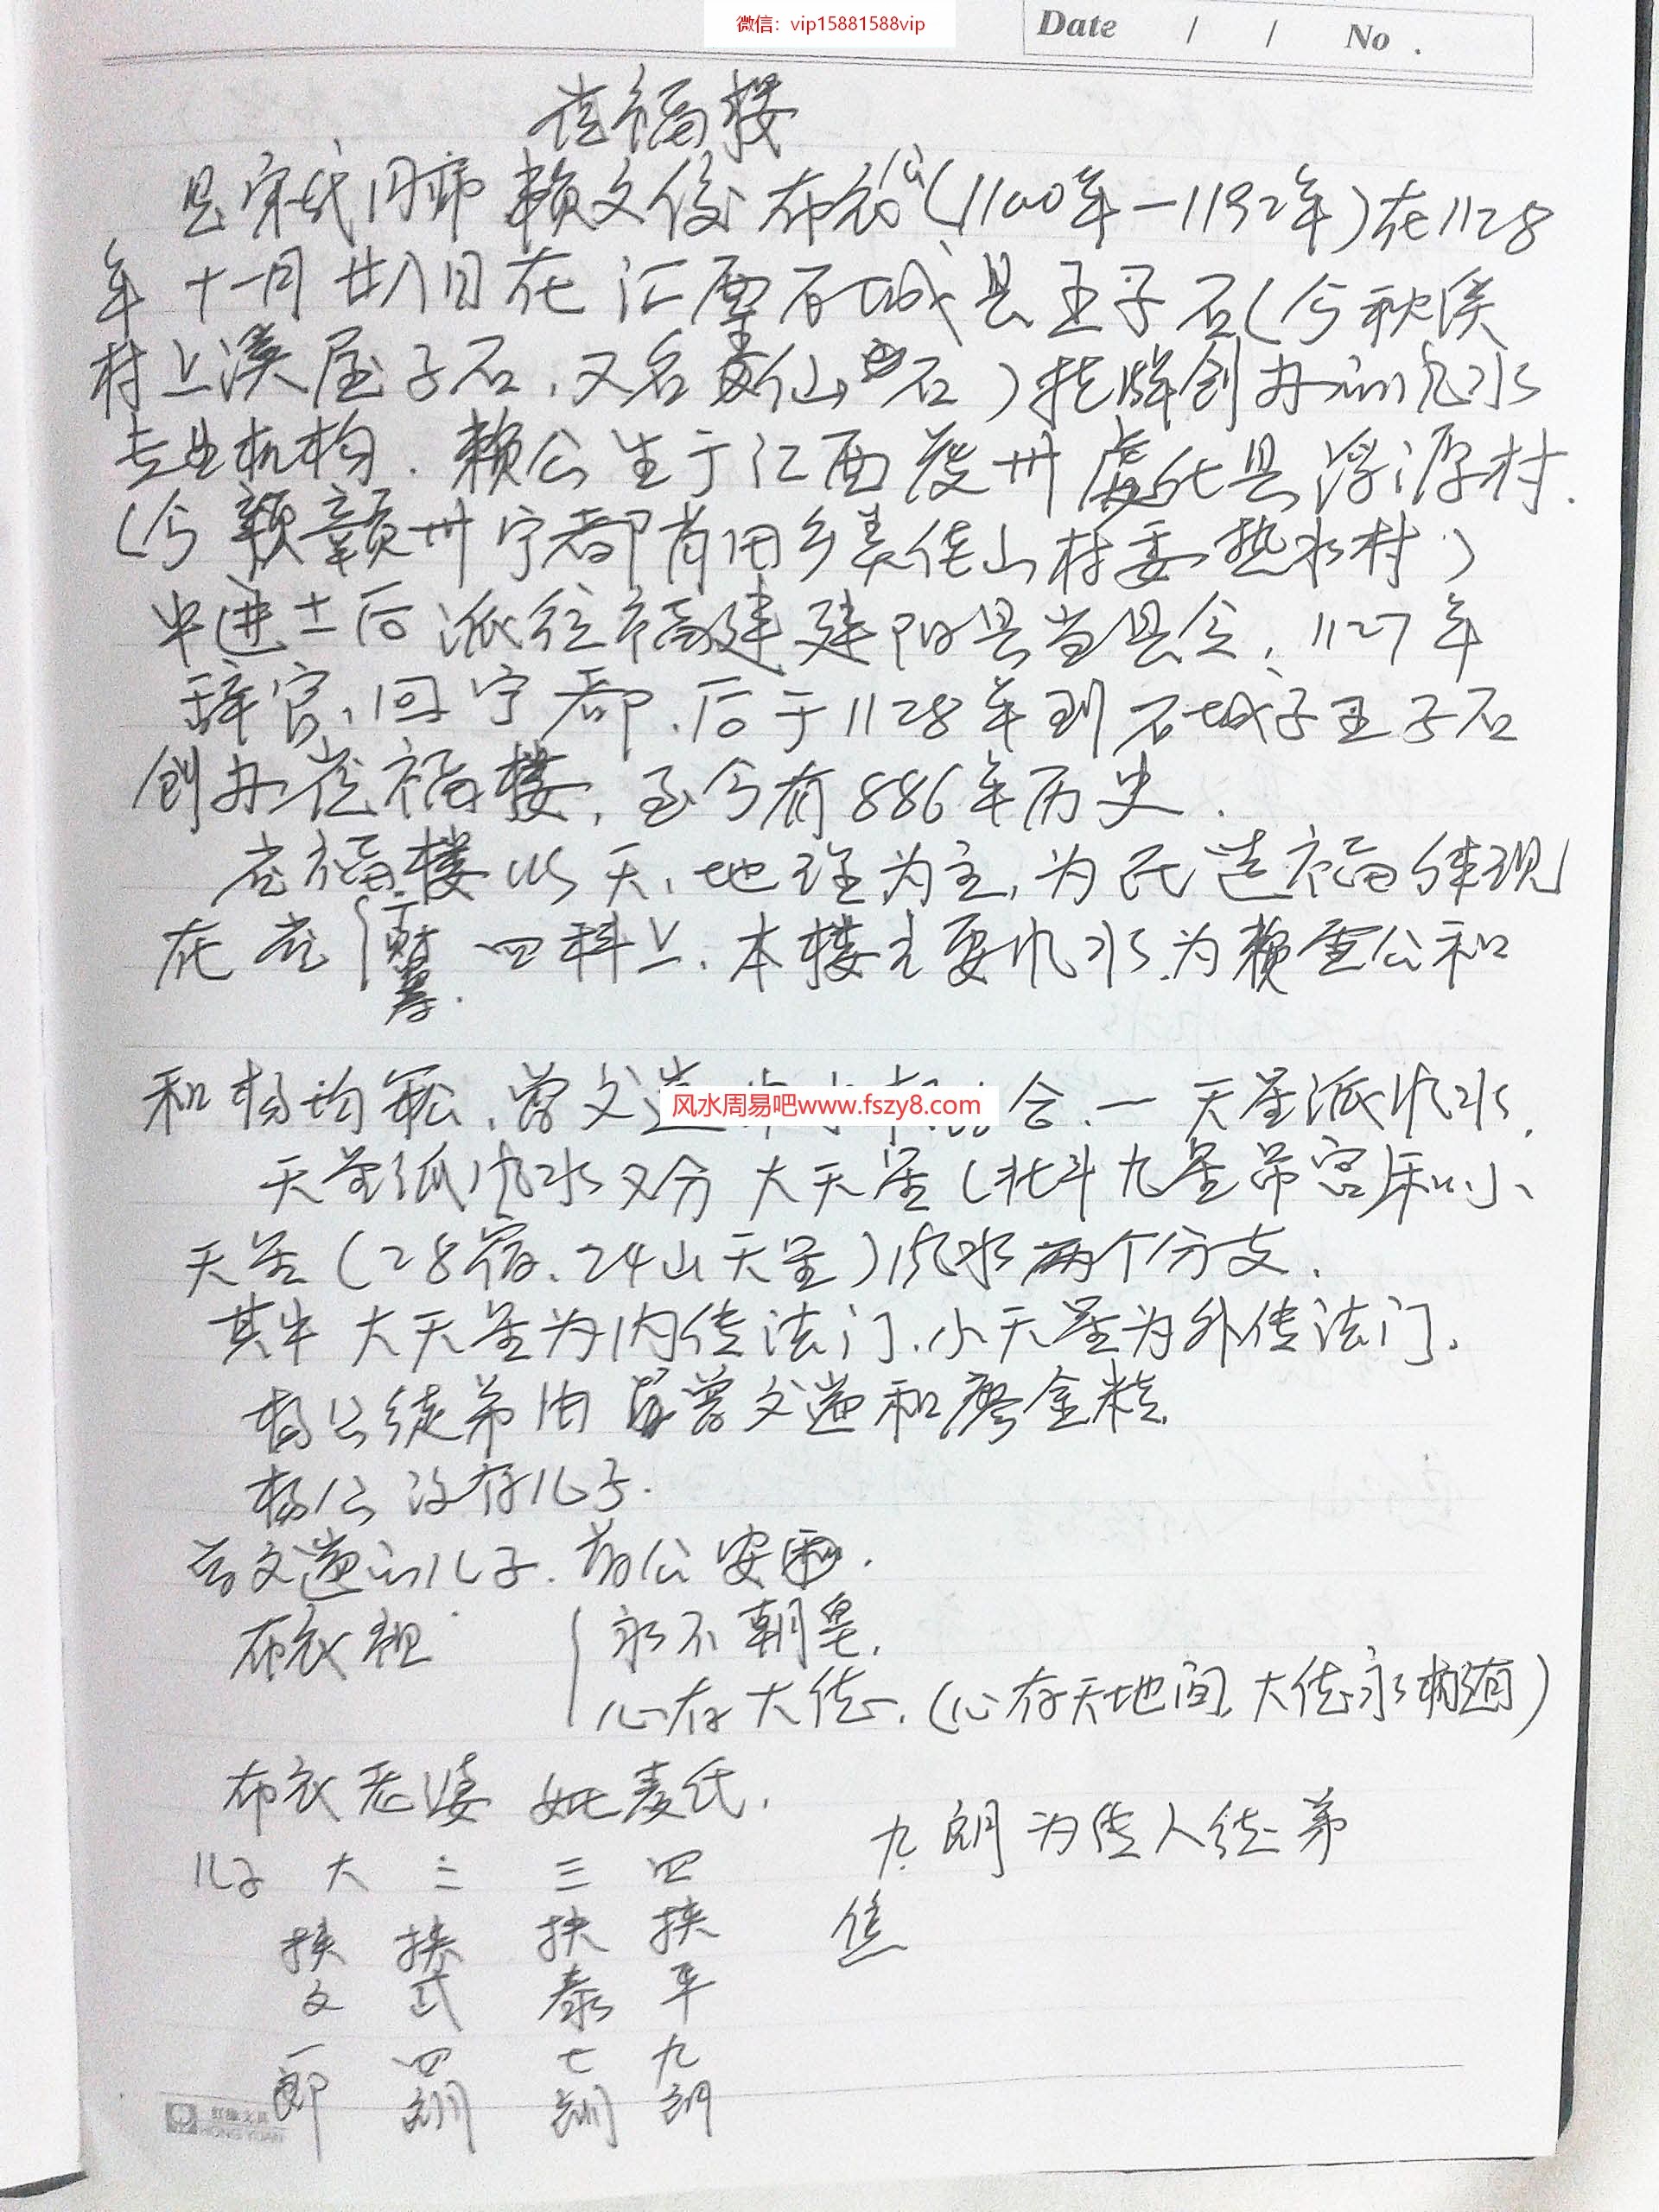 微信：vip15881588vip
Date / / No .
造福楼
是宋代国师赖文俊布衣公(1100年—1192年)在1128
年十一月廿八日在江西石城县王子石(今秋溪
村上溪屋子石,又名仙石)挂牌创办的风水
专业机构.赖公生于江西虔州虔化县浮源村.
(今赣州宁都肖田乡美佳山村委热水村)
中进士后派往福建建阳县当县令,1127年
辞官,回宁都,后于1128年到石城王子石
创办造福楼,至今有886年历史.
造福楼以天、地理为主,为民造福体现
在 四科上.本楼主要风水为赖公和
和杨均松、曾文辿 合一天星派风水.
风水周易吧www.fszy8.com
天星派风水又分大天星(北斗九星吊宫和小
天星(28宿、24山天星)风水两个分支.
其中大天星为内传法门.小天星为外传法门.
杨公徒弟由曾文辿和廖金精.
杨公没有儿子.
曾文辿的儿子.曾公安.
布衣祖 永不朝皇.
心存大德.(心存天地间,大德永相随)
布衣老婆 妣麦氏.
九郎为传人徒弟
儿子 大 二 三 四
扶 扶 扶 扶
文 武 泰 平
一 四 七 九
郎 郎 郎 郎
HONG YUAN